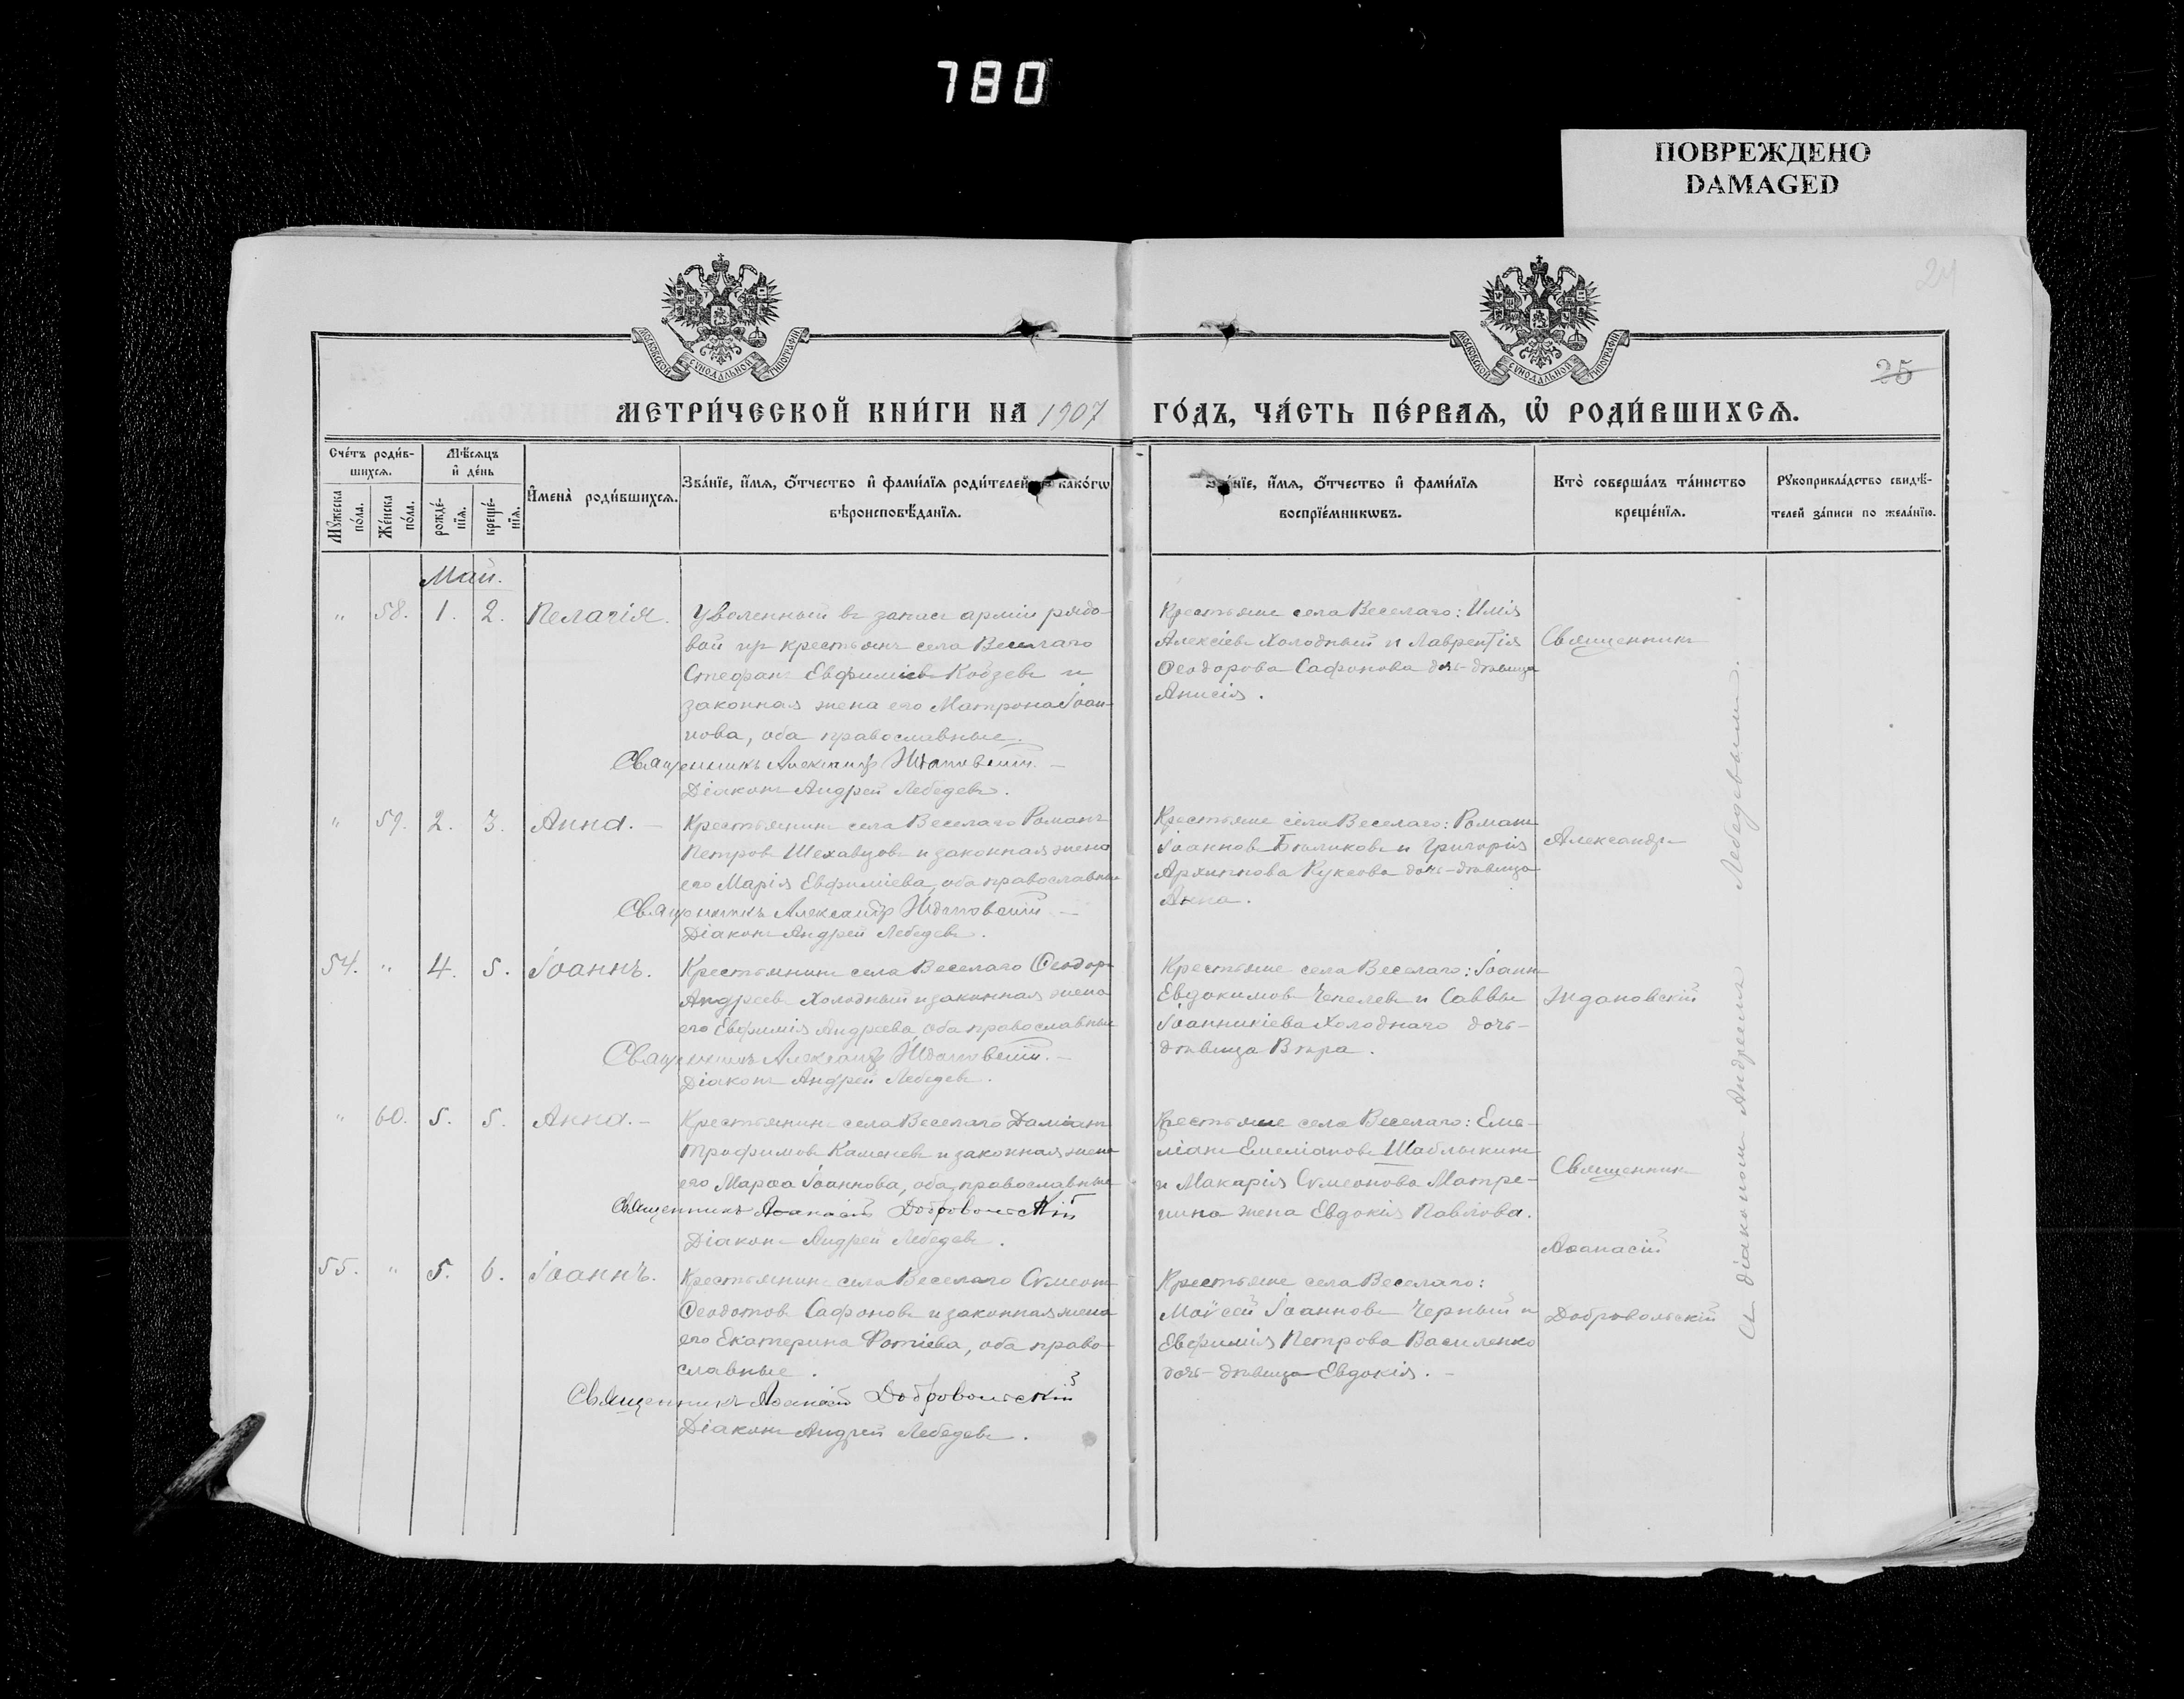 780
ПОВРЕЖДЕНО
DAMAGED
24
25
МОСКОВСКОЙ СѴНОДАЛЬНОЙ ТИПОГРАФІИ
МОСКОВСКОЙ СѴНОДАЛЬНОЙ ТИПОГРАФІИ
МЕТРИ́ЧЕСКОЙ КНИ́ГИ НА 1907 ГО́ДЪ, ЧА́СТЬ ПЕ́РВАѦ, Ѡ РОДИ́ВШИХСѦ.
Сче́тъ роди́в-
шихсѧ.
Мꙋ́жеска по́ла.
Же́нска по́ла.
Мѣ́сѧцъ
и де́нь
рожде́-
нїѧ.
креще́-
нїѧ.
И҆мена̀ роди́вшихсѧ.
Зва́нїе, и҆́мѧ, ѻ҆́тчество и҆ фами́лїѧ роди́телей како́гѡ
вѣроисповѣ́данїѧ.
и҆́мѧ, ѻ҆́тчество и҆ фами́лїѧ
воспрїе́мникѡвъ.
Кто̀ соверша́лъ та́инство
креще́нїѧ.
Рꙋкоприкла́дство свидѣ́-
телей за́писи по жела́нїю.
Май.
" 58. 1. 2. Пелагія.
Уволенный въ запасъ арміи рядо-
вой изъ крестьянъ села Веселаго
Стефанъ Евфиміевъ Кобзевъ и
законная жена его Матрона Іоан-
нова, оба православные.
Священникъ Александръ Ждановскій.
Діаконъ Андрей Лебедевъ.
Крестьяне села Веселаго:
Алексіевъ Холодный и Лаврентія
Ѳеодорова Сафонова дочь-дѣвица
Анисія.
Священникъ
" 59. 2. 3. Анна.
Крестьянинъ села Веселаго Романъ
Петровъ Шехавцовъ и законная жена
его Марія Евфиміева, оба православные
Священникъ Александръ Ждановскій
Діаконъ Андрей Лебедевъ.
Крестьяне села Веселаго: Романъ
Іоанновъ Бѣликовъ и Григорія
Архиппова дочь-дѣвица
Анна.
Александръ
54. " 4. 5. Іоаннъ.
Крестьянинъ села Веселаго Ѳеодоръ
Андреевъ Холодный и законная жена
его Евфимія Андреева, оба православные
Священникъ Александръ Ждановскій.
Діаконъ Андрей Лебедевъ.
Крестьяне села Веселаго: Іоаннъ
Евдокимовъ Чепелевъ и Саввы
Іоанникіева Холоднаго дочь-
дѣвица Вѣра.
Ждановскій
" 60. 5. 5. Анна.
Крестьянинъ села Веселаго Даміанъ
Трофимовъ Каменевъ и законная жена
его Марѳа Іоаннова, оба православные
Священникъ Аѳанасій Добровольскій
Діаконъ Андрей Лебедевъ.
Крестьяне села Веселаго: Еме-
ліанъ Емеліановъ Шаблыкинъ
и Макарія Сѵмеонова Матре-
нина жена Евдокія Павлова.
Священникъ
Аѳанасій
55. " 5. 6. Іоаннъ.
Крестьянинъ села Веселаго Сѵмеонъ
Ѳеодотовъ Сафоновъ и законная жена
его Екатерина Фотіева, оба право-
славные.
Священникъ Аѳанасій Добровольскій
Діаконъ Андрей Лебедевъ.
Крестьяне села Веселаго:
Моѵсей Іоанновъ Черный и
Евфимія Петрова Василенко
дочь-дѣвица Евдокія.
Добровольскій
съ діакономъ Андреемъ Лебедевымъ.